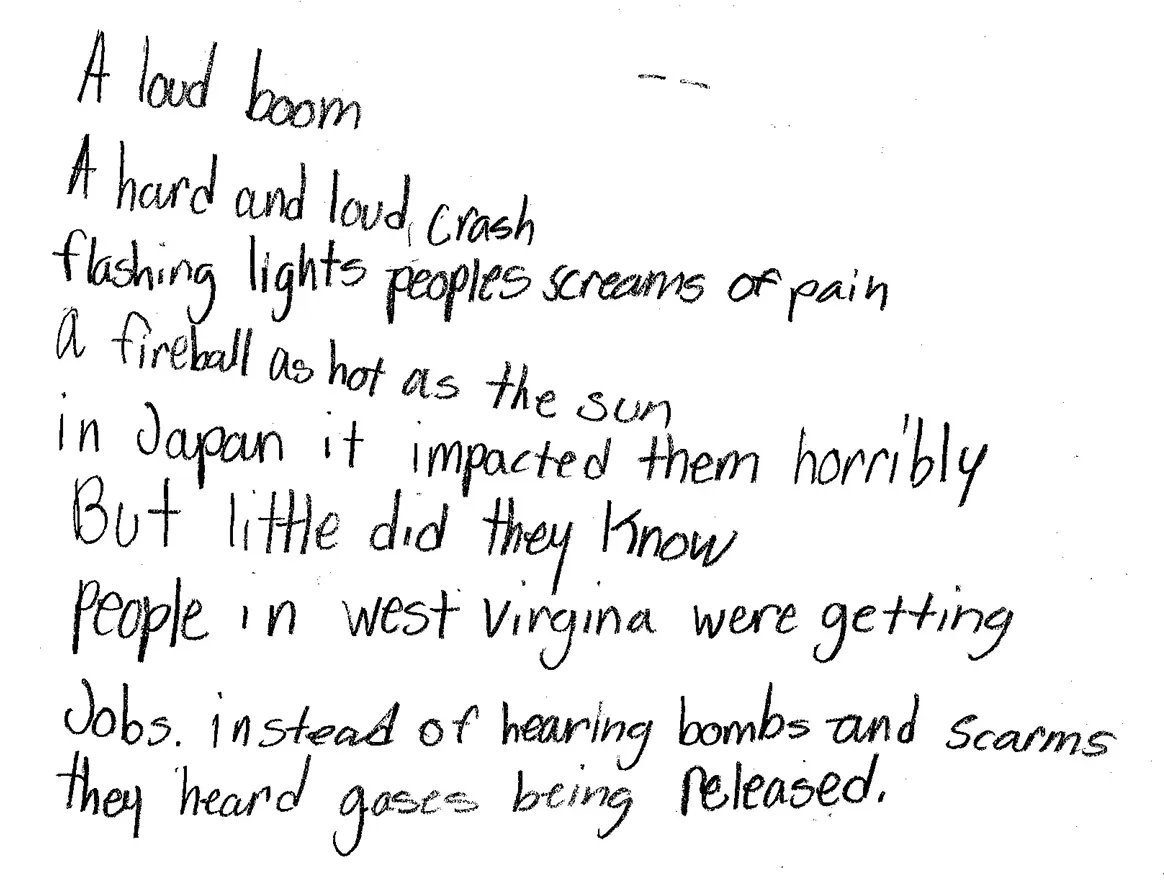 A loud boom
A hard and loud, crash
flashing lights peoples screams of pain
a fireball as hot as the sun
in Japan it impacted them horribly
But little did they know
people in west virgina were getting
Jobs. instead of hearing bombs and scarms
they heard gases being released.